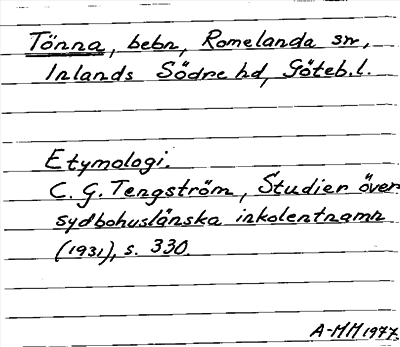 Tönna, bebn, Romelanda sn,
Inlands Södre hd, Göteb.l.
Etymologi.
C. G. Tengström, Studier över
sydbohuslänska inkolentnamn
(1931), s. 330.
A-MM 1977.